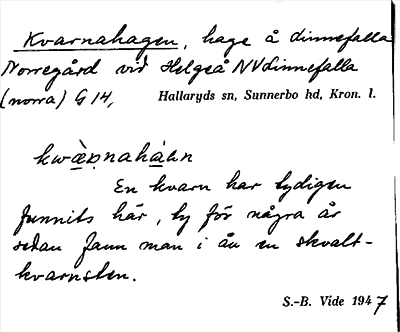 Kvarnahagen, hage å dinnefalla
Norregård vid Helgeå NVdinnefalla
(norra) G 14,
Hallaryds sn, Sunnerbo hd, Kron. l.
En kvarn har tydligen
funnits här, ty för några år
sedan fann man i ån en skvalt-
kvarnsten.
S.-B. Vide 1947